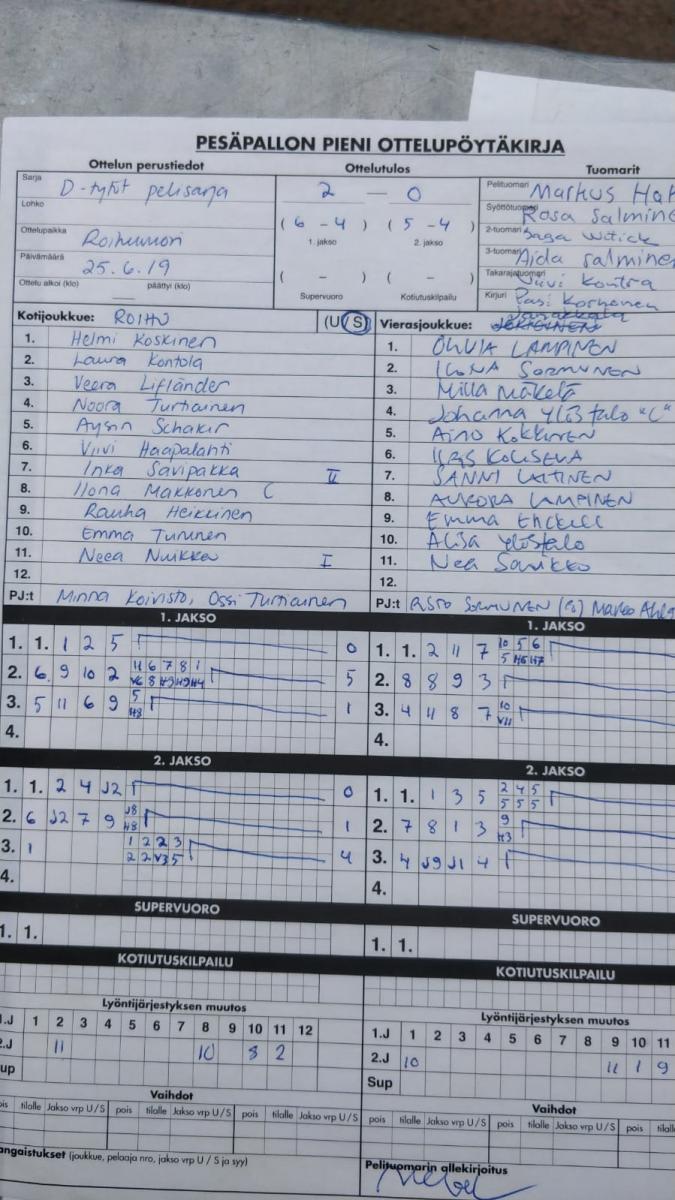 PESÄPALLON PIENI OTTELUPÖYTÄKIRJA
Ottelun perustiedot
Sarja D-tytöt pelisarja
Lohko
Ottelupaikka Roihuvuori
Päivämäärä 25.6.19
Ottelu alkoi (klo) päättyi (klo)
Ottelutulos
2 — 0
( 6 - 4 ) ( 5 - 4 )
1. jakso 2. jakso
( - ) ( - )
Supervuoro Kotiutuskilpailu
Tuomarit
Pelituomari Markus
Syöttötuomari Rosa
2-tuomari Saga
3-tuomari Aida
Takarajatuomari Viivi Kontra
Kirjuri Pasi Korhonen
Kotijoukkue: ROIHU (U/S)
1. Helmi Koskinen
2. Laura Kontola
3. Veera Lifländer
4. Noora Turtiainen
5. Aysın Schakir
6. Viivi Haapalahti
7. Inka Savipakka II
8. Ilona Makkonen C
9. Rauha Heikkinen
10. Emma Turunen
11. Neea Nuikka I
12.
PJ:t Minna Koivisto, Ossi Turtiainen
Vierasjoukkue: Janakkala
1. OLIVIA LAMPINEN
2. ILONA SORMUNEN
3. Milla Mäkelä
4. Johanna Ylöstalo "C"
5. Aino Kokkinen
6.
7. SANNI LAITINEN
8. AURORA LAMPINEN
9. Emma
10. Alisa Ylöstalo
11. Nea Sarikko
12.
PJ:t RISTO SORMUNEN Marko
1. JAKSO
1. 1. 1 2 5 0
2. 6 9 10 2 11 6 7 8 1 5
V6 8 H3 H9 H4
3. 5 11 6 9 5 1
H8
4.
1. JAKSO
1. 1. 2 11 7 10 5 6
5 H6 H7
2. 8 8 9 3
3. 4 11 8 7 10
V11
4.
2. JAKSO
1. 1. 2 4 J2 0
2. 6 J2 7 9 J8 1
H8
3. 1 1 2 2 3 4
2 2 V3 5
4.
2. JAKSO
1. 1. 1 3 5 2 4 5
5 5 5
2. 7 8 1 3 9
H3
3. 4 J9 J1 4
4.
SUPERVUORO
1. 1.
SUPERVUORO
1. 1.
KOTIUTUSKILPAILU
KOTIUTUSKILPAILU
Lyöntijärjestyksen muutos
1.J 1 2 3 4 5 6 7 8 9 10 11 12
2.J 11 10 8 2
up
Lyöntijärjestyksen muutos
1.J 1 2 3 4 5 6 7 8 9 10 11
2.J 10 11 1 9
Sup
Vaihdot
ois tilalle Jakso vrp U/S pois tilalle Jakso vrp U/S pois tilalle Jakso vrp U/S
Vaihdot
pois tilalle Jakso vrp U/S pois tilalle Jakso vrp U/S pois
angaistukset (joukkue, pelaaja nro, jakso vrp U / S ja syy)
Pelituomarin allekirjoitus